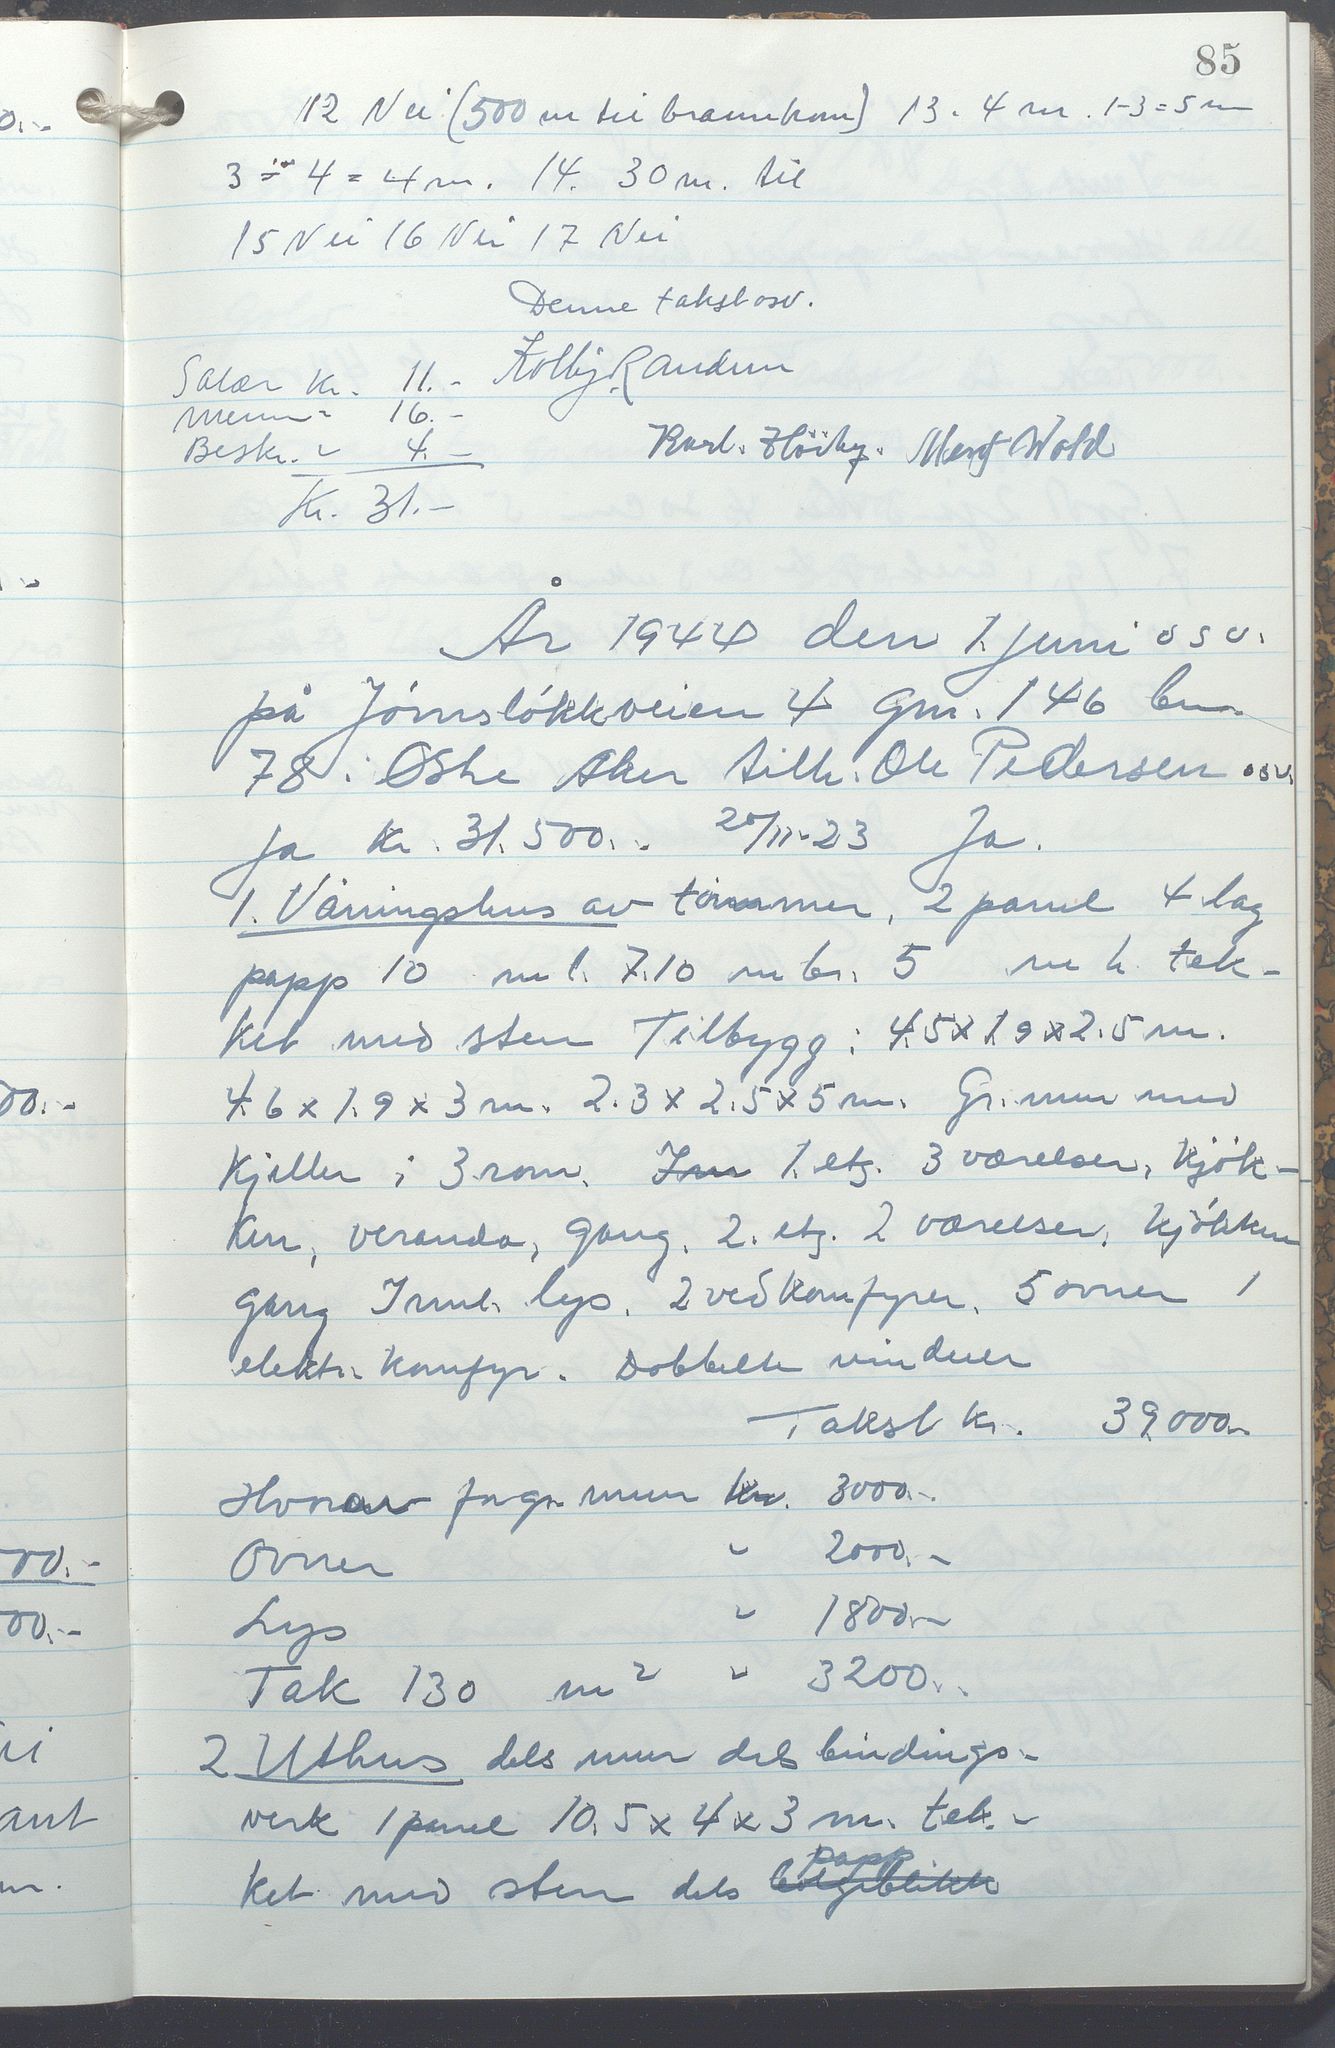 85
12 Nei (500 m til brannkom) 13. 4 m. 1-3 = 5 m
3 - 4 = 4 m. 14. 30 m. til
15 Nei 16 Nei 17 Nei
Denne takst osv.
Salær kr. 11.-
Menn " 16.-
Beskr. " 4.-
Kr. 31.-
Kolbj. Randem
Karl. Höiby. Wold
År 1944 den 1. juni osv.
på Jönsløkkveien 4 gnr. 146 bnr.
78 i Østre Aker tilh. Ole Pedersen osv.
Ja kr. 31.500.- 20/11-23 Ja.
1. Våningshus av tömmer, 2 panel 4 lag
papp 10 m l. 7.10 m br. 5 m h. tek-
ket med sten Tilbygg: 4.5 x 1.9 x 2.5 m.
4.6 x 1.9 x 3 m. 2.3 x 2.5 x 5 m. Gr. mur med
kjeller i 3 rom. Inn 1. etg. 3 værelser, kjök-
ken, veranda, gang. 2. etg. 2 værelser, kjökken
gang Innl. lys. 2 vedkomfyrer. 5 ovner 1
elektr. komfyr. Dobbelte vinduer
Takst kr. 39000.-
Hvorav for gr. mur kr. 3000.-
Ovner " 2000.-
Lys " 1800.-
Tak 130 m² " 3200.-
2 Uthus dels mur dels bindings-
verk 1 panel 10.5 x 4 x 3 m. tek-
ket med sten dels bølgeblikk papp
00.-
000.-
00.-